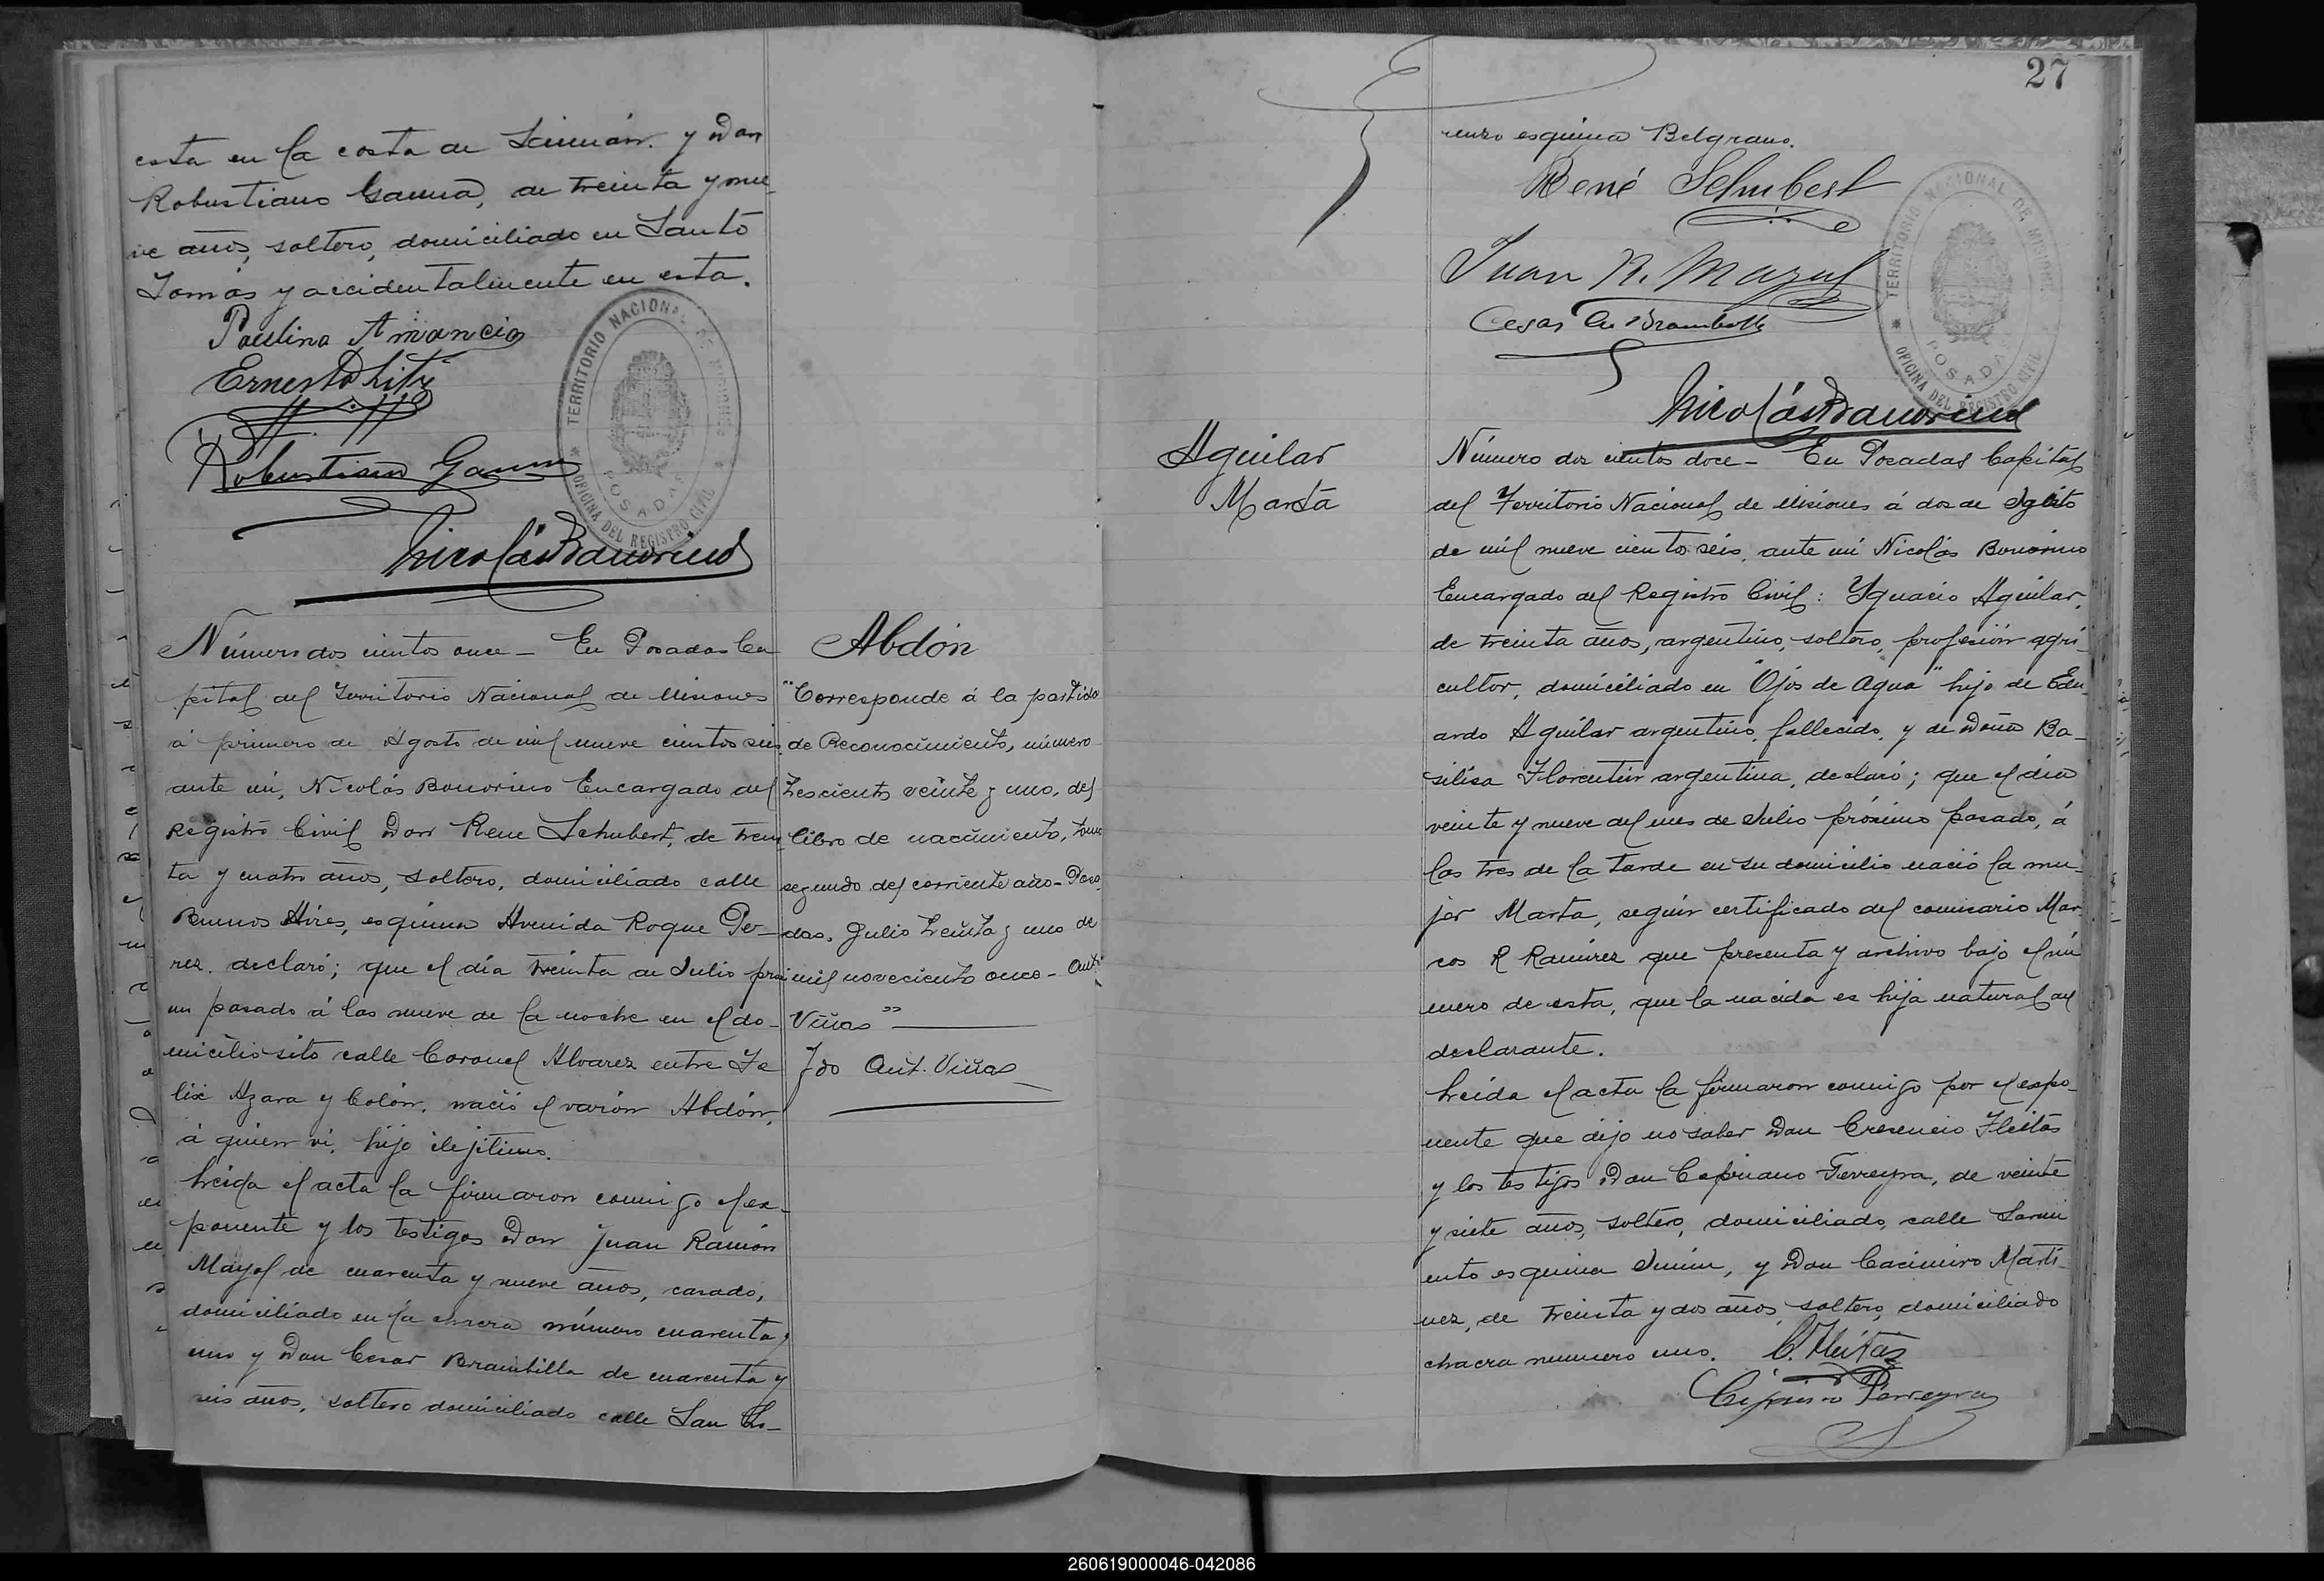 esta en la costa de y Don
Robustiano Gauna, de treinta y nue-
ve años, soltero, domiciliado en Santo
Tomás y accidentalmente en esta.
Paulino Amancio
Ernesto
Robustiano Gauna
TERRITORIO NACIONAL DE MISIONES
POSADAS
OFICINA DEL REGISTRO CIVIL
Nicolás Bonorino
Número dos cientos once - En Posadas Ca
pital del Territorio Nacional de Misiones
á primero de Agosto de mil nueve cientos seis,
ante mí, Nicolás Bonorino Encargado del
Registro Civil Don Rene Schubert, de trein
ta y cuatro años, soltero, domiciliado calle
Buenos Aires, esquina Avenida Roque Pe-
rez. declaró; que el día treinta de Julio próxi
mo pasado á las nueve de la noche en el do-
micilio sito calle Coronel Alvarez entre Fe
lix Azara y Colón, nació el varón Abdón,
á quien vi, hijo ilejitimo.
Leida el acta la firmaron conmigo el ex-
ponente y los testigos Don Juan Ramón
Mayol de cuarenta y nueve años, casado,
domiciliado en la chacra número cuarenta y
uno y Don Cesar Brambilla de cuarenta y
seis años, soltero domiciliado calle San Lo-
Abdón
"Corresponde á la partida
de Reconocimiento, número
trescientos veinte y uno, del
libro de nacimiento, tomo
segundo del corriente año - Posa
das, Julio treinta y uno de
mil novecientos once - Ant.
Viñas"
Fdo Ant. Viñas
27
renzo esquina Belgrano.
René Schubert
Juan R. Mayol
Cesar Brambilla
TERRITORIO NACIONAL DE MISIONES
POSADAS
OFICINA DEL REGISTRO CIVIL
Nicolás Bonorino
Aguilar
Marta
Número dos cientos doce - En Posadas Capital
del Territorio Nacional de Misiones á dos de Agosto
de mil nueve cientos seis, ante mí Nicolás Bonorino
Encargado del Registro Civil: Ygnacio Aguilar,
de treinta años, argentino, soltero, profesión agri-
cultor, domiciliado en "Ojos de Agua" hijo de Edu-
ardo Aguilar argentino, fallecido, y de Doña Ba-
silisa Florentin argentina, declaró; que el día
veinte y nueve del mes de Julio próximo pasado, á
las tres de la tarde en su domicilio nació la mu-
jer Marta, según certificado del comisario Mar
cos R Ramirez que presenta y archivo bajo el nú
mero de esta, que la nacida es hija natural del
declarante.
Leida el acta la firmaron conmigo por el expo-
nente que dijo no saber Don Cresencio Fleitas
y los testigos Don Cipriano Ferreyra, de veinte
y siete años, soltero, domiciliado, calle Sarmi
ento esquina Junin, y Don Casimiro Marti-
nez, de treinta y dos años, soltero, domiciliado
chacra numero uno. C. Fleitas
Cipriano Ferreyra
260619000046-042086